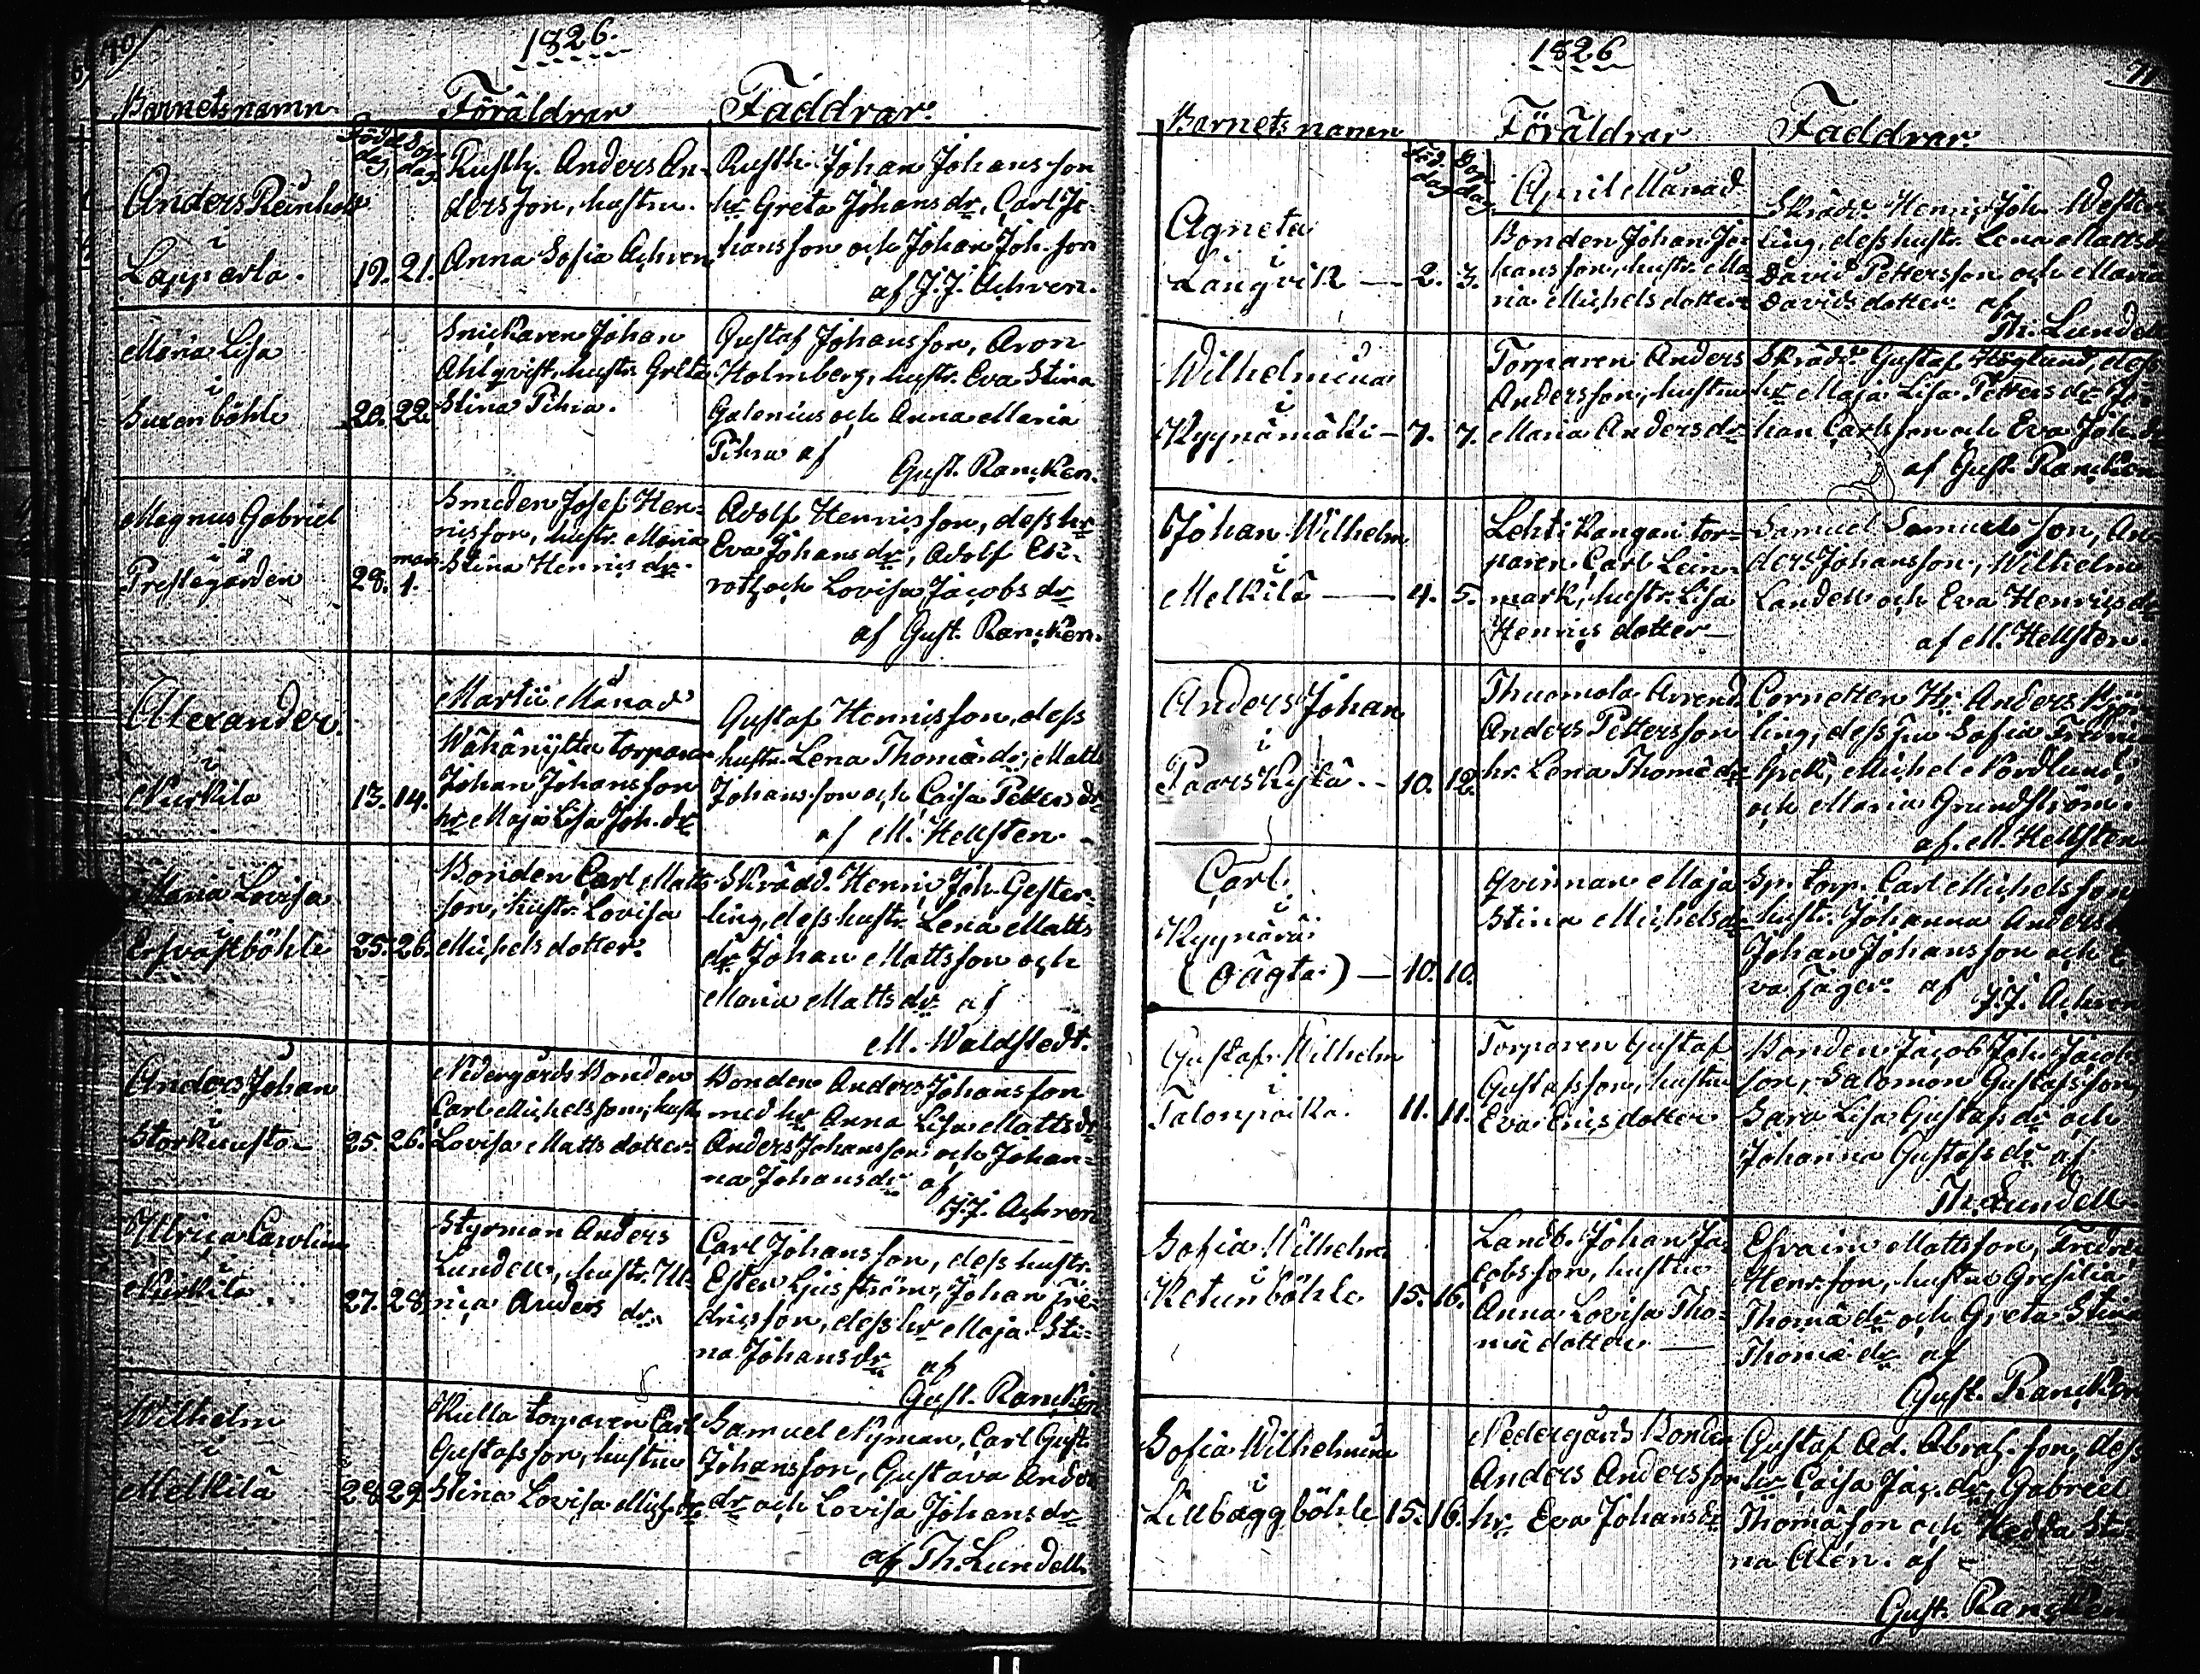 40
1826.
Barnetsnamn
Födelsedag
Dopdag
Föräldrar
Faddrar.
Anders Reinhold
i
Lapparla.
19. 21.
Rusth. Anders An-
dersson, hustru
Anna Sofia Achren
Rusth. Johan Johansson
hr Greta Johans dr, Carl Jo-
hansson och Johan Joh. son
af J. J. Achren.
Maria Lisa
i
Suxenböhle
20. 22.
Snickaren Johan
Ahlqvist, hustr. Greta
Stina Pihra.
Gustaf Johansson, Aron
Holmberg, hustr. Eva Stina
Galenius och Anna Maria
Pihra af
Gust. Rancken.
Magnus Gabriel
i
Prestegården
28. mars 1.
Smeden Josef Hen-
riksson, hustr. Maria
Stina Henrics dr.
Adolf Henricsson, dess hr
Eva Johans dr, Adolf Esi-
roth och Lovisa Jacobs dr
af Gust. Rancken.
Alexander
i
Nurkila
13. 14.
Martii Månad
Wähänyttu torparen
Johan Johansson
hr Maja Lisa Joh. dr
Gustaf Henricsson, dess
hustr. Lena Thomæ dr, Matts
Johansson och Caisa Petters dr
af M. Hellsten
Maria Lovisa
i
Esvastböhle
25. 26.
Bonden Carl Matts
son, hustr. Lovisa
Michels dotter.
Skrädd. Henric Joh. Gester-
ling, dess hustr. Lena Matts
dr, Johan Mattsson och
Maria Matts dr af
M. Waldstedt.
Anders Johan
i
Storkunsta
25. 26.
Nedergårds Bonden
Carl Michelsson, hustr.
Lovisa Matts dotter.
Bonden Anders Johansson
med hr Anna Lisa Matts dr
Anders Johansson och Johan-
na Johans dr af
J. J. Achren
Ulrica Carolina
i
Nurkila
27. 28.
Styrman Anders
Lundell, hustr. Ul-
rica Anders dr.
Carl Johansson, dess hustr.
Ester Ljusström, Johan Fre-
dricsson, dess hr Maja Sti-
na Johans dr
af
Gust. Rancken
Wilhelm
i
Melkilä
28. 29.
Kulla torparen Carl
Gustafsson, hustru
Stina Lovisa Mich. dr
Samuel Nyman, Carl Gust.
Johansson, Gustava Anders
dr och Lovisa Johans dr
af Th. Lundell.
1826
41
Barnets namn
Föd. dag
Dop dag
Föräldrar
Faddrar.
Agneta
i
Långvik
2. 3.
April Månad
Bonden Johan Jo-
hansson, hustr. Ma-
ria Michels dotter
Skrädd. Henric Joh. Wester-
ling, dess hustr. Lena Matts dr
David Pettersson och Maria
Davids dotter. af
Th. Lundell
Wilhelmina
i
Kyynämäki
7. 7.
Torparen Anders
Andersson, hustru
Maria Anders dr
Skrädd. Gustaf Höglund, dess
hr Maja Lisa Petters dr Jo-
han Carlsson och Eva Joh. dr
af Gust. Rancken
Johan Wilhelm
i
Melkilä
4. 5.
Lehtikangari tor-
paren Carl Lein-
mark, hustr. Lisa
Henrics dotter
Samuel Samuelsson, An-
ders Johansson, Wilhelm
Landell och Eva Henrics dr
af M. Hellsten.
Anders Johan
i
Paarskylä
10. 12.
Thuomola Arrend.
Anders Pettersson
hr Lena Thomæ dr
Cornetten Hr Anders Björ-
ling, dess fru Sofia Fredrica
Michel Nordlund,
och Maria Grundström.
af M. Hellsten
Carl
i
Kyynärä
(Oägta)
10. 10.
Qvinnan Maja
Stina Michels dr
Sp. torp. Carl Michelsson
hustr. Johanna Anders
Johan Johansson och E-
va Jäger. af J. J. Achren
Gustaf Wilhelm
i
Talonpoika.
11. 11.
Torparen Gustaf
Gustafsson, hustru
Eva Erics dotter
Bonden Jacob Joh. Jacobs
son, Salomon Gustafsson,
Sara Lisa Gustafs dr och
Johanna Gustafs dr af
Th. Lundell.
Sofia Wilhelm.
i
Ketunböhle
15. 16.
Landb. Johan Ja-
cobsson, hustru
Anna Lovisa Tho-
mæ dotter
Efraim Mattsson, Fredric
Henr. son, hustru Gresilia
Thomæ dr och Greta Stina
Thomæ dr af
Gust. Rancken
Sofia Wilhelmina
i
Lillbaggböhle
15. 16.
Nedergårds Bonden
Anders Andersson
hr Eva Johans dr
Gustaf Ad. Abrah. son, dess
hr Caisa Jac. dr, Gabriel
Thomæson och Hedda Sti-
na Alén. af
Gust. Rancken